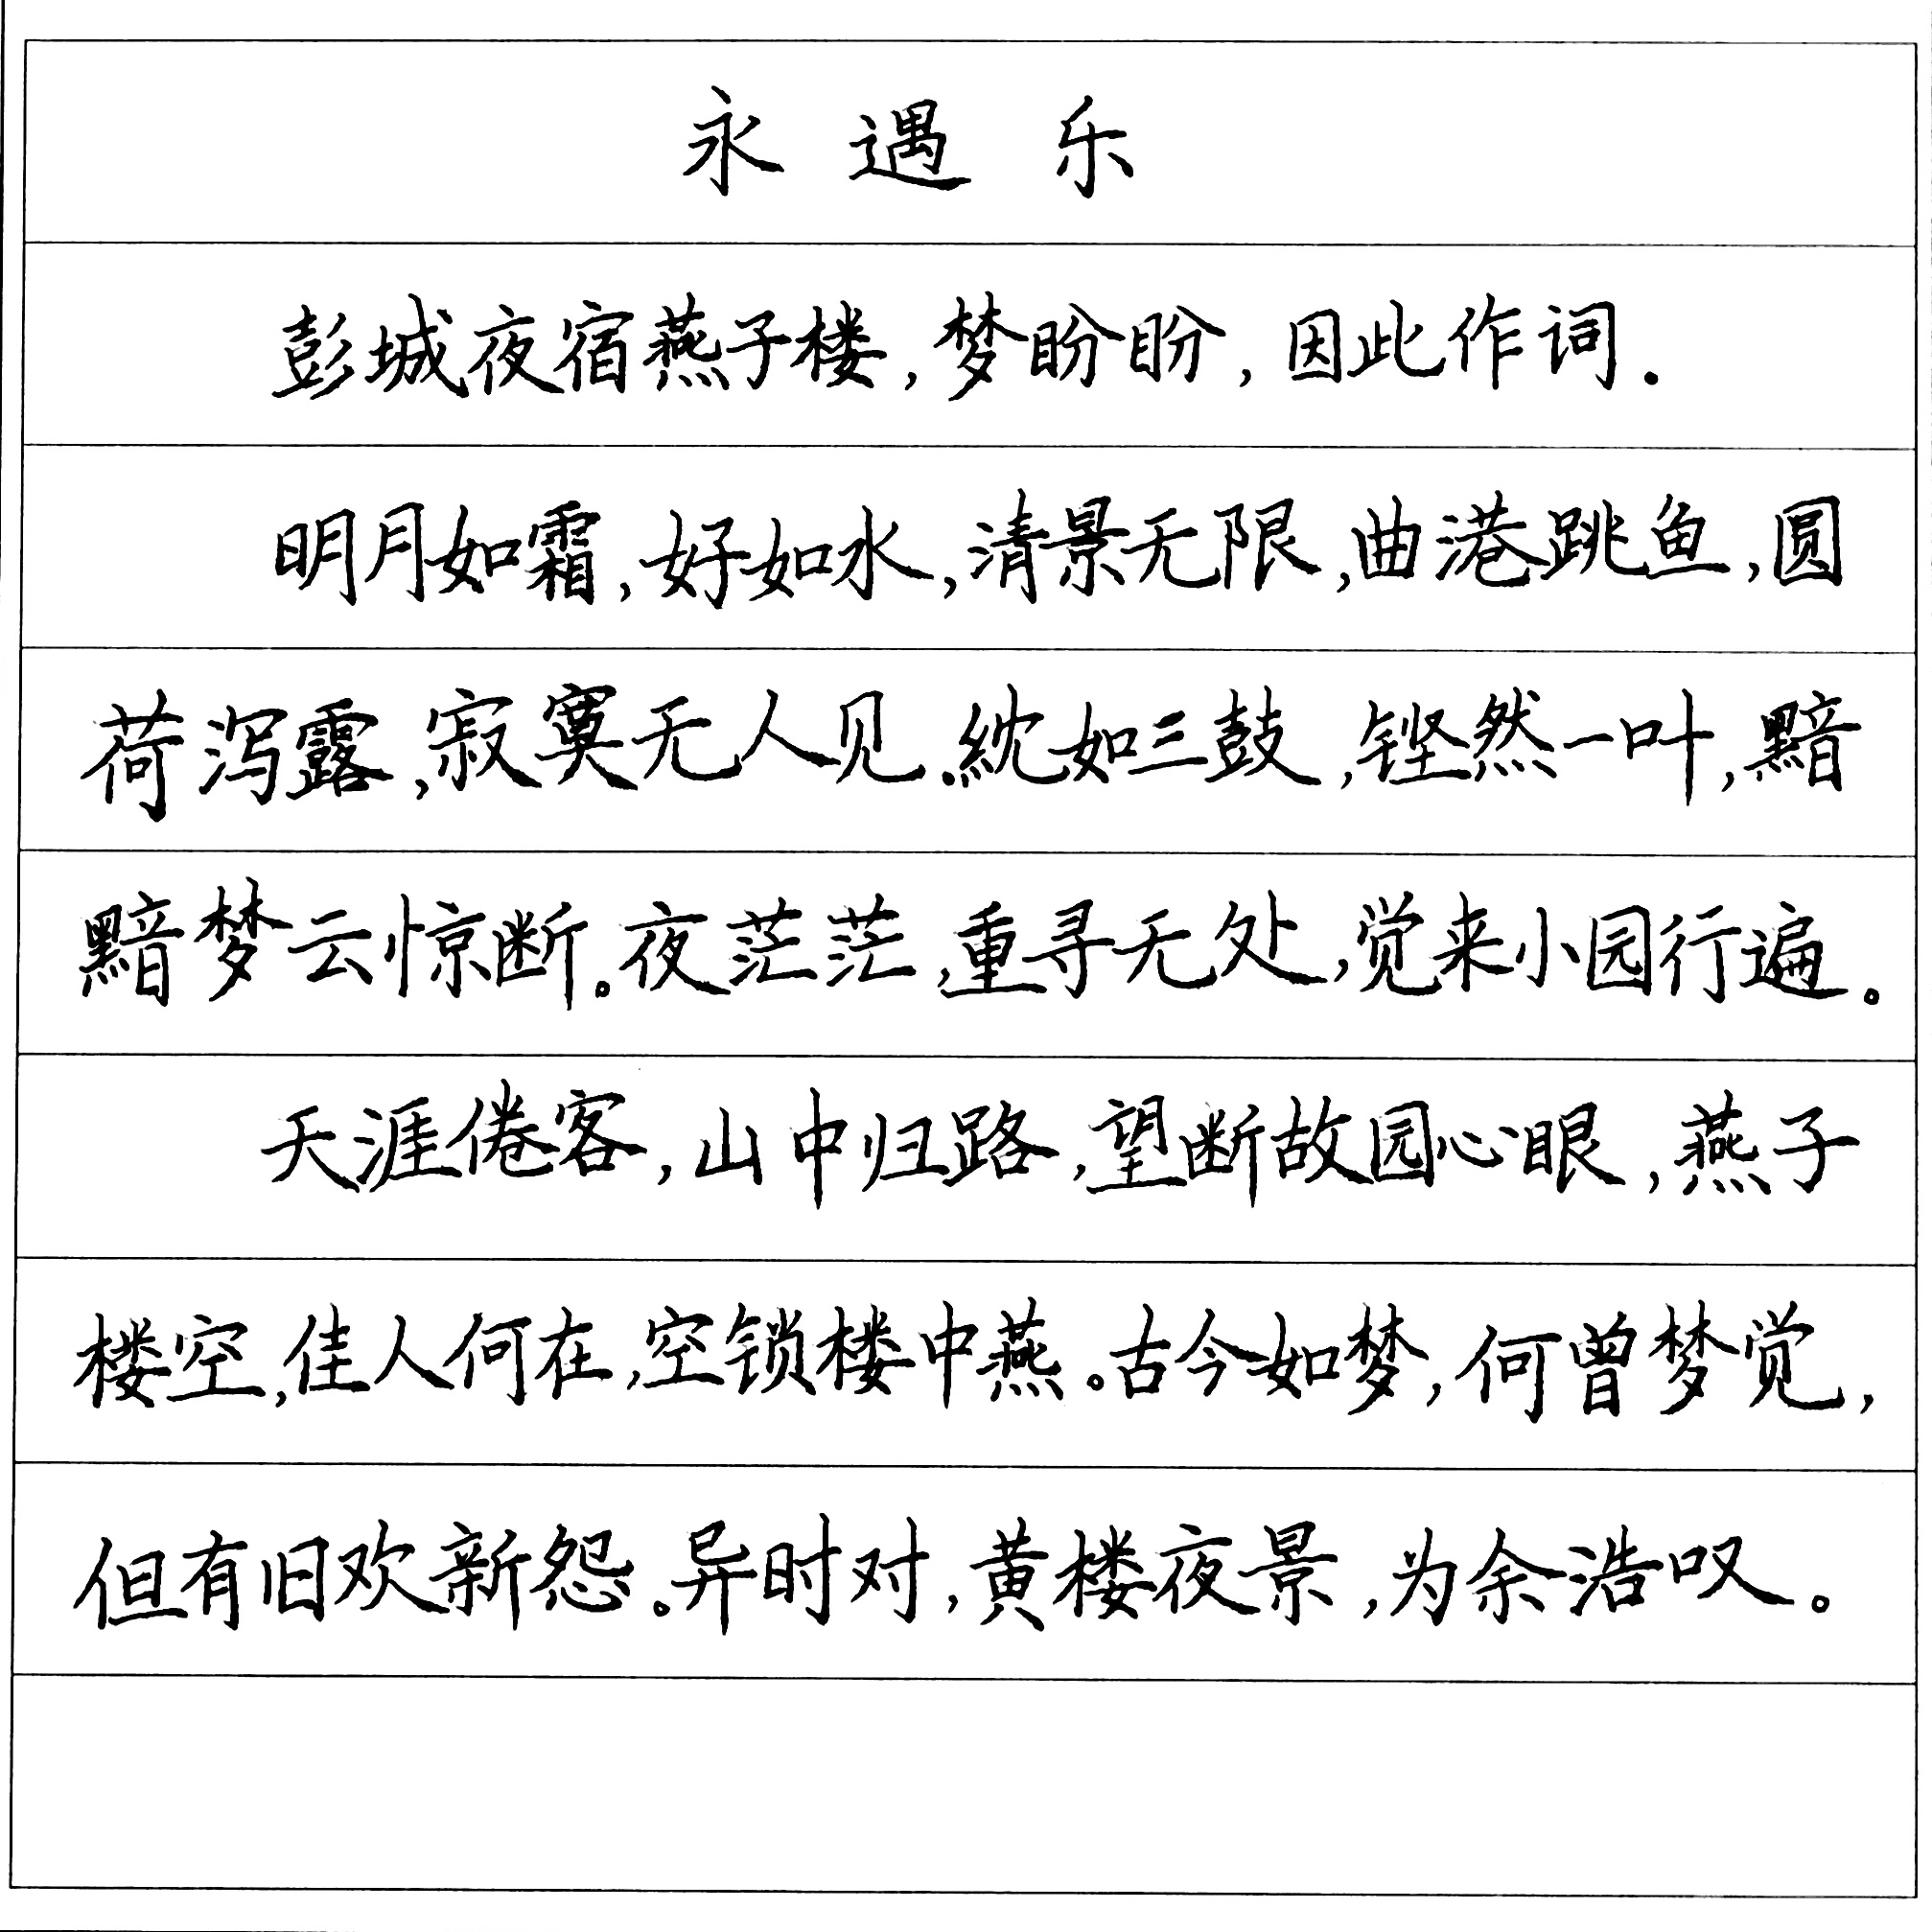 永遇乐
彭城夜宿燕子楼,梦盼盼,因此作词.
明月如霜,好如水,清景无限,曲港跳鱼,圆
荷泻露,寂寞无人见.紞如三鼓,铿然一叶,黯
黯梦云惊断。夜茫茫,重寻无处,觉来小园行遍。
天涯倦客,山中归路,望断故园心眼,燕子
楼空,佳人何在,空锁楼中燕。古今如梦,何曾梦觉,
但有旧欢新怨。异时对,黄楼夜景,为余浩叹。